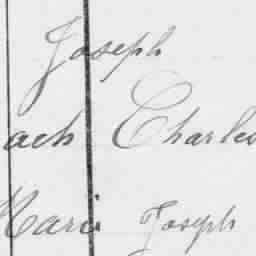 Joseph
ach Charles
Marie Joseph